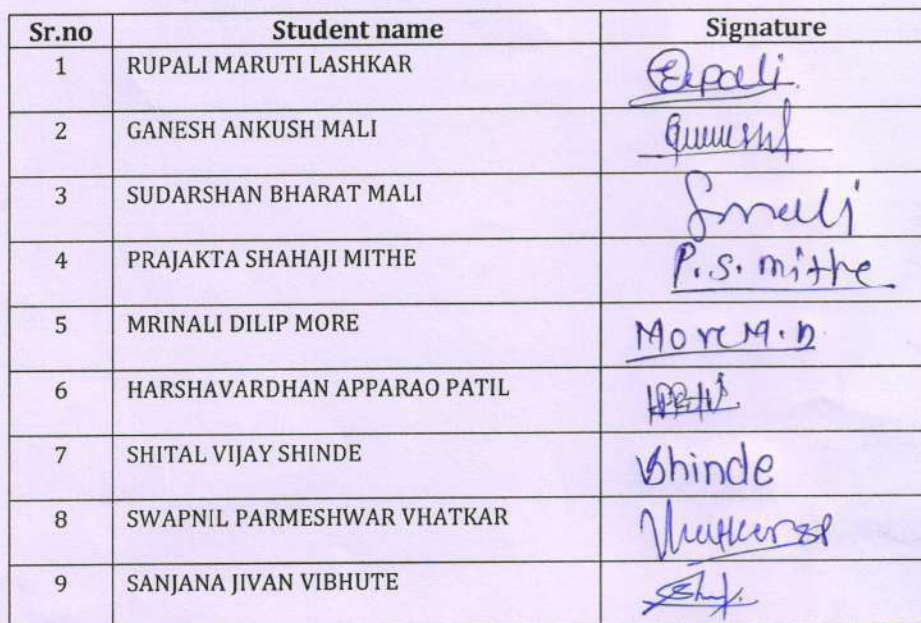 Sr.no Student name Signature
1 RUPALI MARUTI LASHKAR Rupali
2 GANESH ANKUSH MALI
3 SUDARSHAN BHARAT MALI Smali
4 PRAJAKTA SHAHAJI MITHE P.S. mithe
5 MRINALI DILIP MORE More M.D.
6 HARSHAVARDHAN APPARAO PATIL
7 SHITAL VIJAY SHINDE Shinde
8 SWAPNIL PARMESHWAR VHATKAR
9 SANJANA JIVAN VIBHUTE